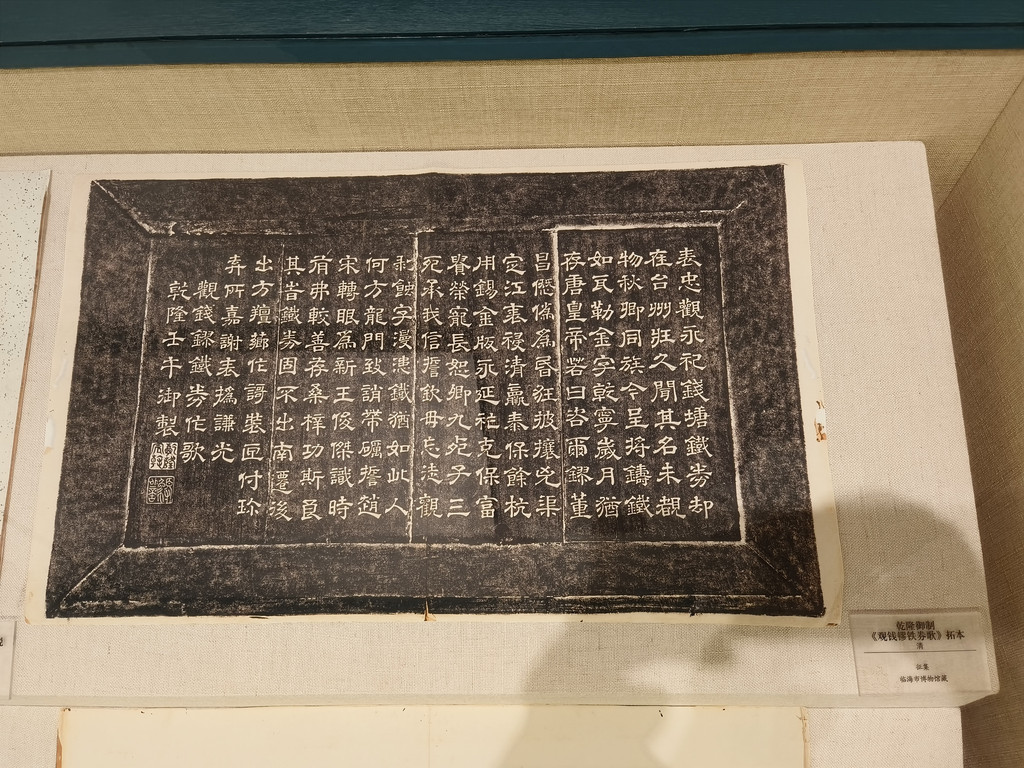 表忠觀永祀錢塘鐵券却
在台州莊久聞其名未覩
物秋卿同族令呈將鑄鐵
如瓦勒金字乾寧歲月猶
存唐皇帝若曰咨爾鏐董
昌僭偽為昏狂披攘兇渠
定江表祲清泰保餘杭
用錫金版永延祉克保富
貴榮寵長恕卿九死子三
死承我信誓欽毋忘迄觀
剥蝕字漫漶鐵猶如此人
何方龍門致誚帶礪誓趙
宋轉眼為新王俊傑識時
有弗較善存桑梓功斯良
其昔鐵券固不出南遷後
出方羶薌作謌裝匣付珍
弆所嘉謝表撝謙光
觀錢鏐鐵券作歌
乾隆壬午御製
乾隆御制
《观钱镠铁券歌》拓本
清
征集
临海市博物馆藏